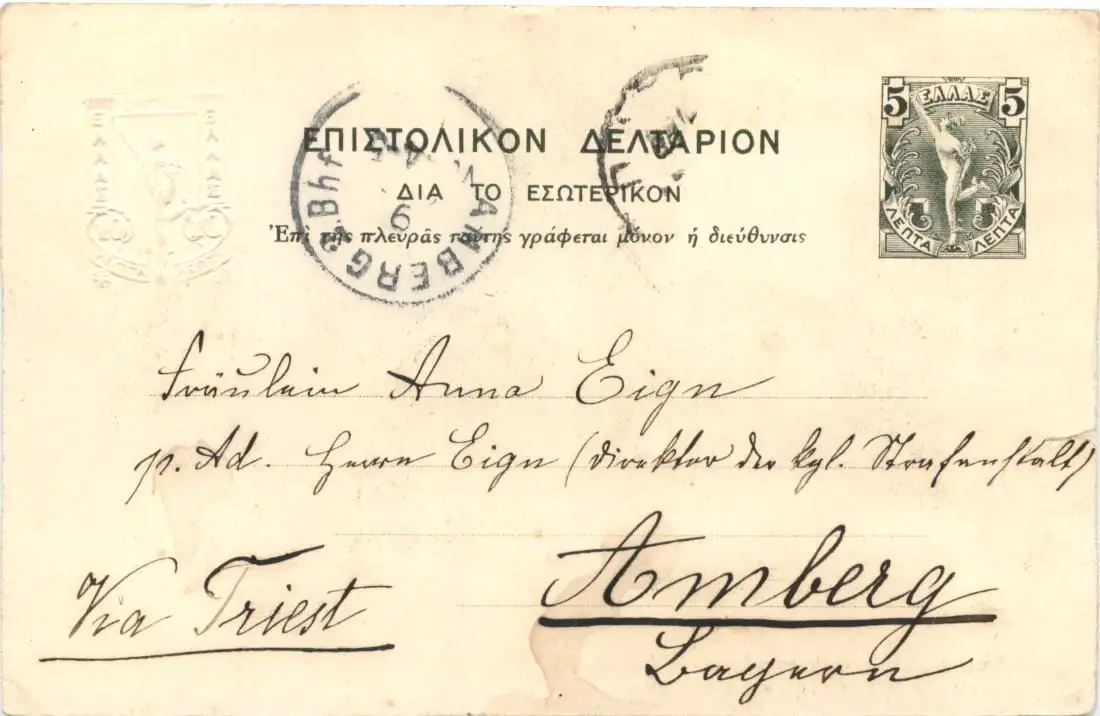 5 ΕΛΛΑΣ 5
ΕΠΙΣΤΟΛΙΚΟΝ ΔΕΛΤΑΡΙΟΝ
ΔΙΑ ΤΟ ΕΣΩΤΕΡΙΚΟΝ
Ἐπὶ τῆς πλευρᾶς ταύτης γράφεται μόνον ἡ διεύθυνσις
5 ΛΕΠΤΑ ΛΕΠΤΑ 5
ΕΛΛΑΣ ΕΛΛΑΣ
AMBERG 2 Bhf
Fräulein Anna Eign
p. Ad. Herrn Eign (Direktor der kgl. Strafanstalt)
Via Triest
Amberg
Bayern